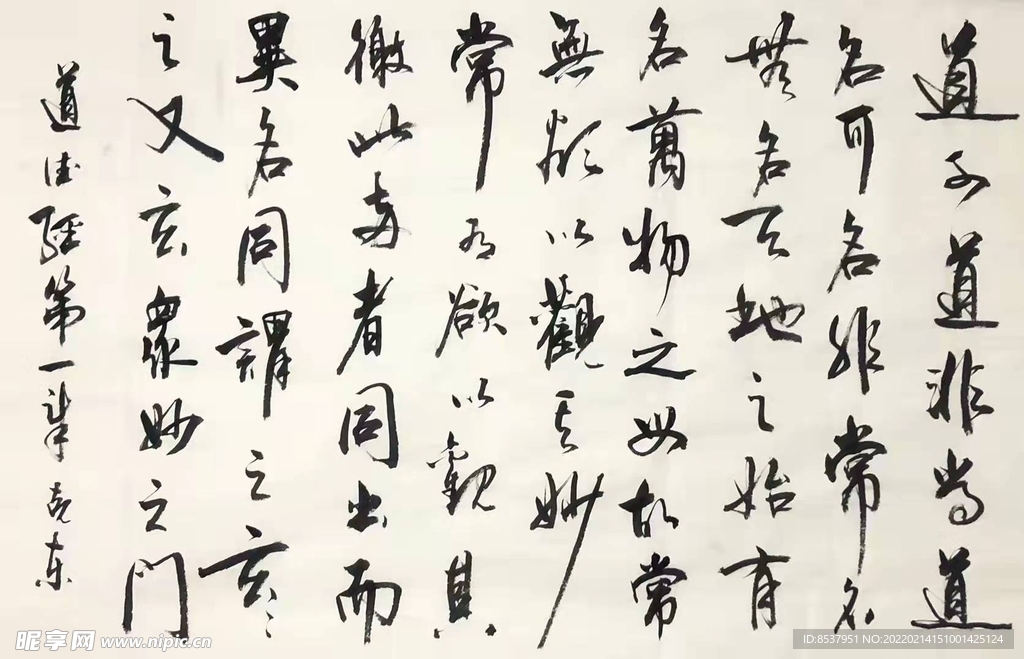 道可道非常道
名可名非常名
無名天地之始有
名萬物之母故常
無欲以觀其妙
常有欲以觀其
徼此兩者同出而
異名同謂之玄〻
之又玄眾妙之門
道德經第一章
昵享网 www.nipic.cn
ID:8537951 NO:20220214151001425124